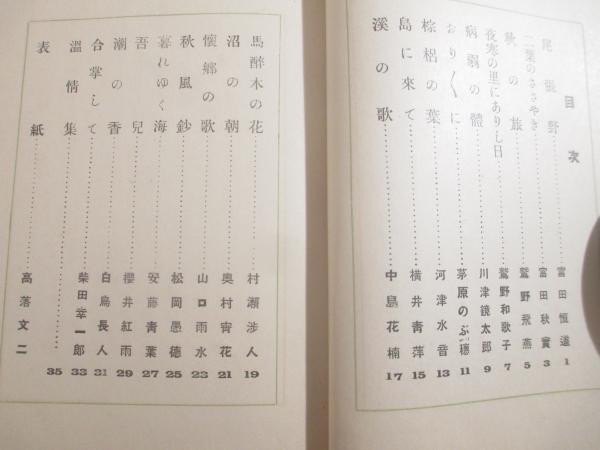 目次
尾張野 富田恒道 1
二葉のささやき 富田秋實 3
秋の旅 鷲野飛燕 5
夜寒の里にありし日 鷲野和歌子 7
病弱の體 川津鏡太郎 9
おり〱に 茅原のぶ穗 11
棕梠の葉 河津水音 13
島に來て 横井青萍 15
溪の歌 中島花楠 17
馬醉木の花 村瀬渉人 19
沼の朝 奥村宵花 21
懷鄕の歌 山口雨水 23
秋風鈔 松岡墨德 25
暮れゆく海 安藤青葉 27
吾兒 櫻井紅雨 29
潮の香 白鳥長人 31
合掌して 柴田幸一郎 33
溫情集 35
表紙 高落文二